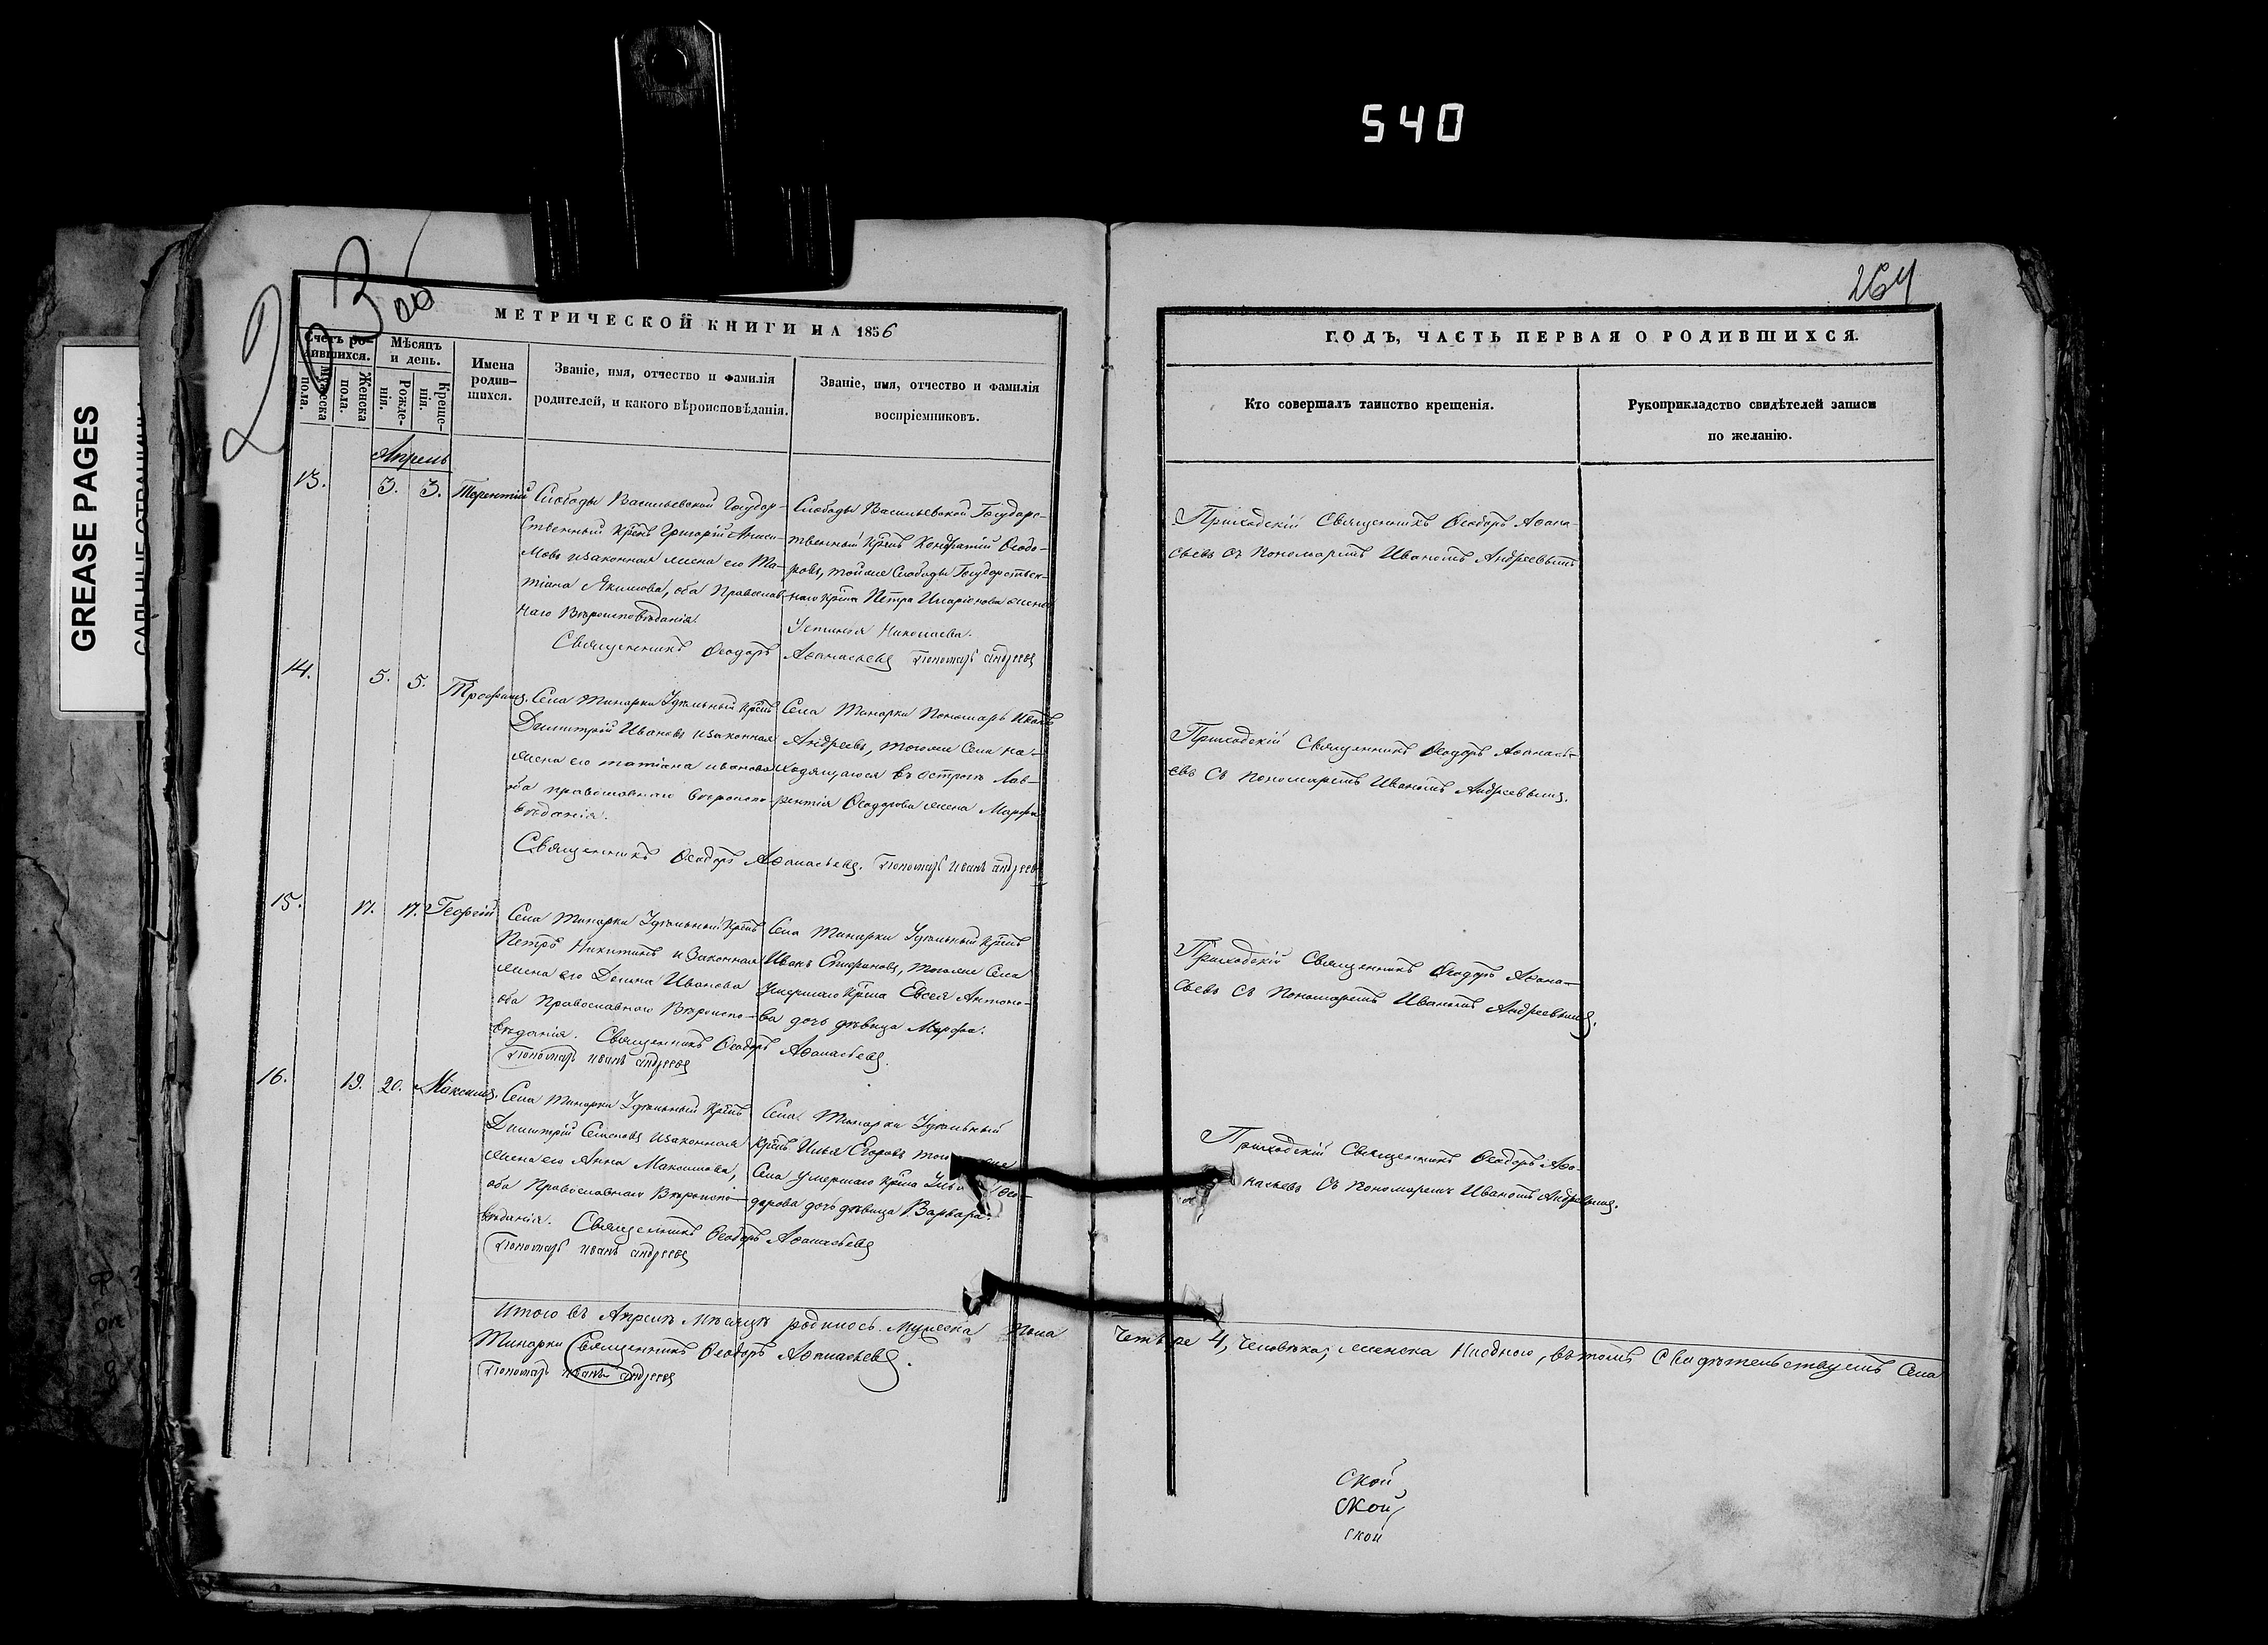 540
GREASE PAGES
263 об
264
МЕТРИЧЕСКОЙ КНИГИ НА 1856
ГОДЪ, ЧАСТЬ ПЕРВАЯ О РОДИВШИХСЯ.
Счетъ родившихся.
Мужеска пола.
Женска пола.
Мѣсяцъ и день.
Рожденія.
Крещенія.
Имена родившихся.
Званіе, имя, отчество и фамилія
родителей, и какого вѣроисповѣданія.
Званіе, имя, отчество и фамилія
воспріемниковъ.
Кто совершалъ таинство крещенія.
Рукоприкладство свидѣтелей записи
по желанію.
Апрель
13. 3. 3. Терентій
Слободы Васильевской Государ-
ственный крест Григорій Аниси-
мовъ изаконная жена его Та-
тіана Якимова, оба Православ-
наго Вѣроисповѣданія.
Слободы Васильевской Государс-
твенный крест Кондратій Ѳеодо-
ровъ, тойже Слободы Государствен-
наго крина Петра Иларіонова жена
Устинія Николаева.
Священникъ Ѳеодоръ Аѳанасьевъ Пономарь Андреевъ
Приходскій Священникъ Ѳеодоръ Аѳана-
сьевъ съ Пономаремъ Иваномъ Андреевымъ
14. 5. 5. Трофимъ.
Села Тинарки Удѣльный крест
Димитрій Ивановъ изаконная
жена его татіана иванова
оба православнаго вѣроиспо-
вѣданія.
Села Тинарки Пономарь Иванъ
Андреевъ, тогоже Села на-
ходящагося въ острогѣ Лав-
рентія Ѳеодорова жена Марфа
Священникъ Ѳеодоръ Аѳанасьевъ. Пономарь иванъ андреевъ
Приходскій Священникъ Ѳеодоръ Аѳанась-
евъ Съ пономаремъ Иваномъ Андреевымъ.
15. 17. 17. Георгій
Села Тинарки Удѣльный крест
Петръ Никитинъ и Законная
жена его Дарья Иванова
оба Православнаго Вѣроиспо-
вѣданія. Священникъ Ѳеодоръ Аѳанасьевъ.
Пономарь иванъ андреевъ
Села Тинарки Удѣльный крест
Иванъ Епифановъ, тогоже Села
умершаго крина Евсея Антоно-
ва дочь дѣвица Марфа.
Приходскій Священникъ Ѳеодоръ Аѳана-
сьевъ Съ Пономаремъ Иваномъ Андреевымъ.
16. 19. 20. Максимъ.
Села Тинарки Удѣльный крест
Димитрій Семеновъ изаконная
жена его Анна Максимова,
оба Православнаго Вѣроиспо-
вѣданія. Священникъ Ѳеодоръ Аѳанасьевъ
Пономарь иванъ андреевъ
Села Тинарки Удѣльный
крест Илья Егоровъ того же
Села умершаго крина Ѳео-
дорова дочь дѣвица Варвара.
Приходскій Священникъ Ѳеодоръ Аѳа-
насьевъ Съ пономаремъ Иваномъ Андреевымъ.
Итого въ Апрелѣ мѣсяцѣ родилось Мужеска пола четыре 4, человѣка, женска Ниодного, вътомъ Свидѣтельствуемъ Села
Тинарки Священникъ Ѳеодоръ Аѳанасьевъ.
Пономарь иванъ андреевъ
Ской
Ской
ской